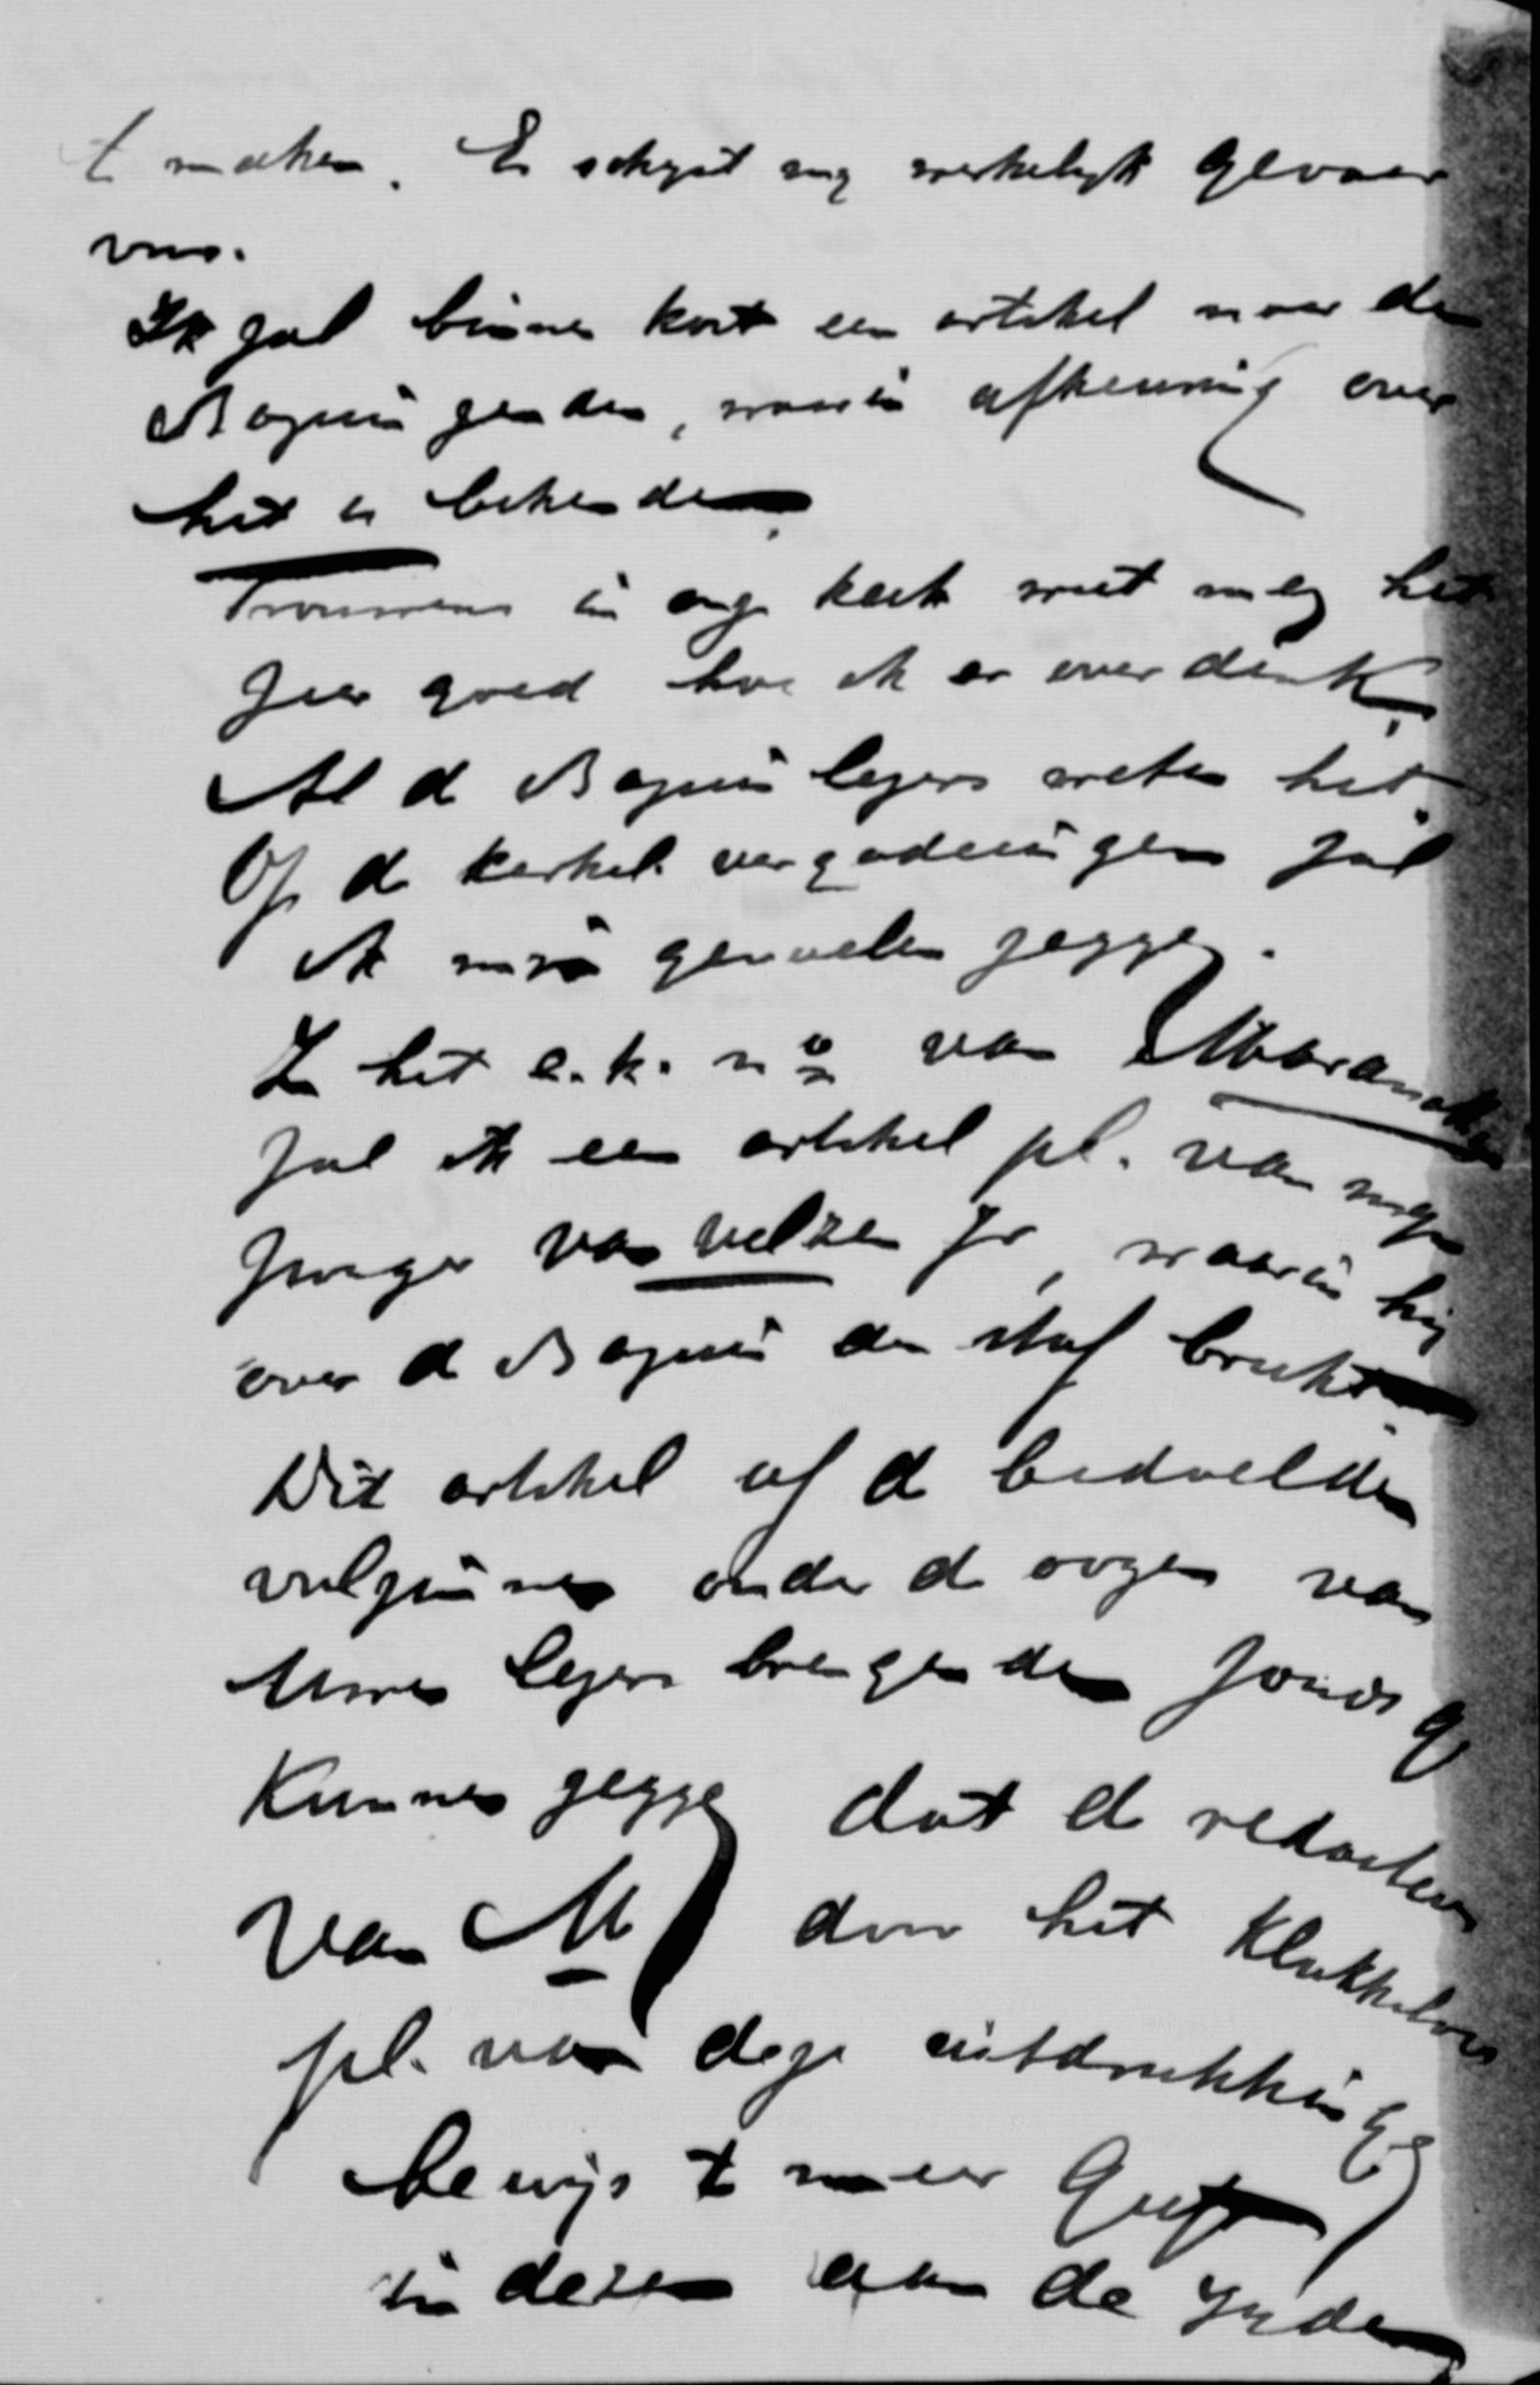 t maken. Er schijnt mij werkelijk gevaar
Ik zal binnen kort een artikel naar de
Bazuin zenden, waarin afkeuring over
het is bekende.
Trouwens in onze kerk weet men het
zeer goed hoe ik er over denk.
Al d Bazuin lezers weten het.
Op de kerkel. vergaderingen zal
ik mijn gevoelen zeggen.
In het e.k. nº van Maranatha
zal ik een artikel pl. van mijn
zwager van Velzen Jr, waarin hij
over d Bazuin den staf breekt.
Dit artikel of d bedoelde
volzinnen onder de oogen van
Uwe lezers brengende zoudt g
kunnen zeggen dat d redacteur
van M door het
pl. van deze uitdrukkingen
bewijs t meer geeft
in dezen aan de zijde